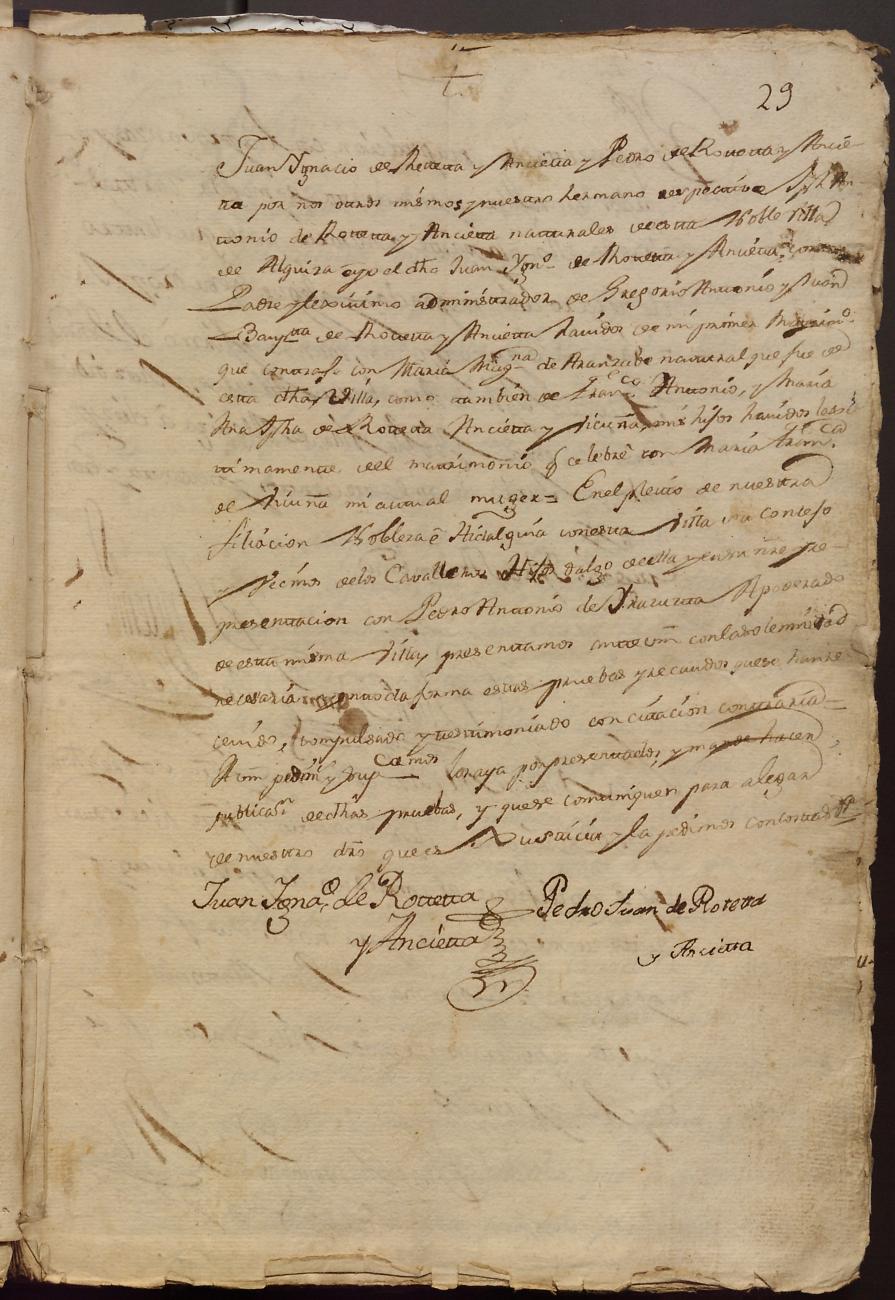 29
Juan Ygnacio de Rottetta y Ancietta y Pedro de Rottetta y Ancie-
tta por nos otros mismos y nuestro hermano respectivo Jph An-
ttonio de Rottetta y Ancietta natturales de estta Noble Villa
de Alquiza e yo el dho Juan Ygnº de Rottetta y Ancietta como
Padre y lexittimo administrador de Gregorio Antonio y Juan
Bauptta de Rottetta y Ancietta havidos de mi primer Mattrimº
que contraje con Maria Mug.na de Aranzube natural que fue de
esta dha Villa, como tambien de Franco Antonio, y Maria
Ana Jpha de Rottetta Ancietta y Vicuña, mis hijos havidos lexi-
timamente del mattrimonio q celebre con Maria Franca
de Vicuña mi actual muger = En el pleitto de nuestra
filiacion Nobleza e Hidalguia con estta Villa su Consejo
y Vecinos de los Cavalleros Hijos dalgo de ella y en su nre re-
presenttacion con Pedro Antonio de Yrazutta Apoderado
de estta misma Villa, presenttamos ante vm con la solemnidad
necesaria en toda forma estas pruebas y recaudos que se han re-
cevido, compulsado y testimoniado con cittacion contraria
A vm pedimˢ y supcamos los aya por presentados, y mande hacer
publicaⁿ de dhas pruebas, y que se comuniquen para alegar
de nuestro dro que es Justticia y la pedimos con costtas &ª
Juan Ygnaº de Rottetta
y Ancietta
Pedro Juan de Rotetta
y Ancietta